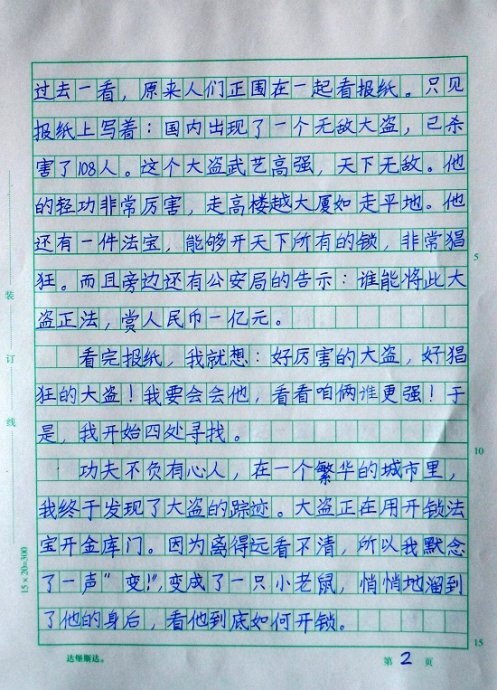 过去一看，原来人们正围在一起看报纸。只见
报纸上写着：国内出现了一个无敌大盗，已杀
害了108人。这个大盗武艺高强，天下无敌。他
的轻功非常厉害，走高楼越大厦如走平地。他
还有一件法宝，能够开天下所有的锁，非常猖
狂。而且旁边还有公安局的告示：谁能将此大
盗正法，赏人民币一亿元。
看完报纸，我就想：好厉害的大盗，好猖
狂的大盗！我要会会他，看看咱俩谁更强！于
是，我开始四处寻找。
功夫不负有心人，在一个繁华的城市里，
我终于发现了大盗的踪迹。大盗正在用开锁法
宝开金库门。因为离得远看不清，所以我默念
了一声"变！"，变成了一只小老鼠，悄悄地溜到
了他的身后，看他到底如何开锁。
装
订
线
15×20=300
5
10
15
达继斯达。
第 2 页